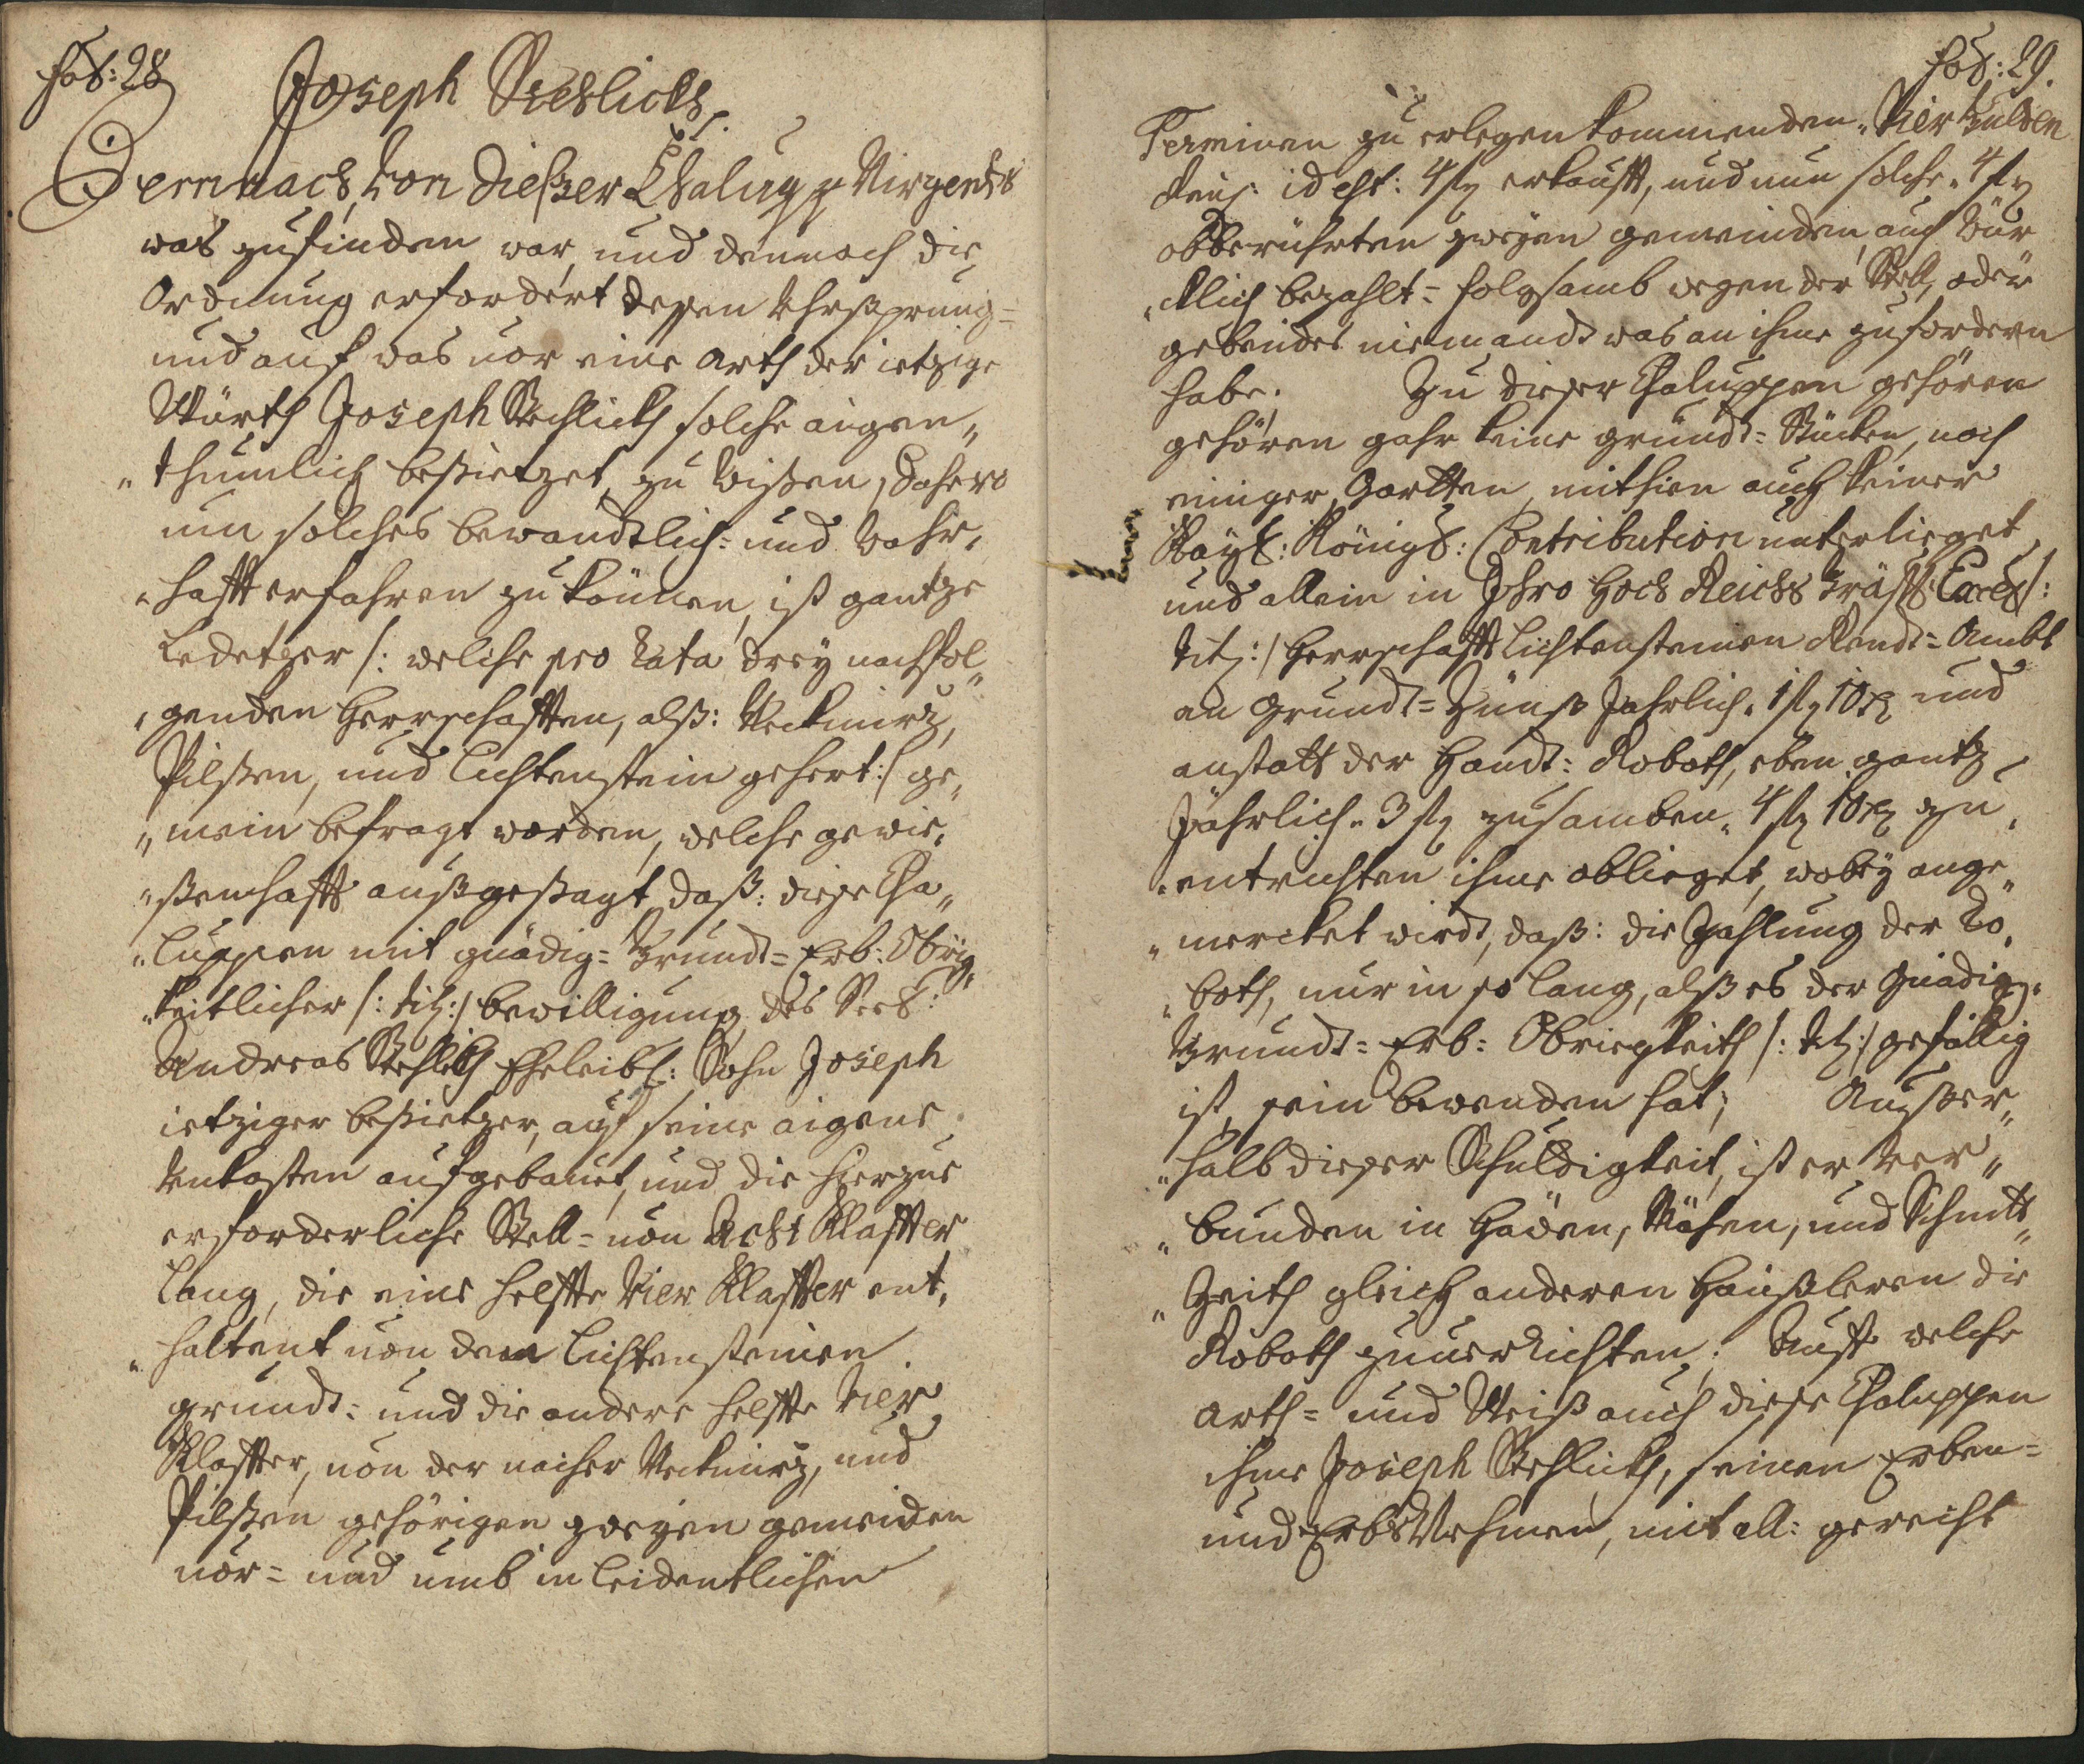 Fol: 28
Joseph Stehlickh.
Demnach von dießer Chalupp Nirgends
was zufinden war, und dennoch die
Ordnung erfordert dessen Uhrsprung=
und auf was vor eine arth der ietzige
Würth Joseph Stehlickh solche aigen„
„thumlich besietzet, zu wißen, dahero
um solches bewandtlich= und wahr„
„hafft erfahren zu können, ist gantze
Ledetzer /: welche pro rata drey nachfol„
„genden Herrschafften, alß: Weckmirz,
Pilßen, und Lichtenstein gehert :/ ge„
„mein befragt worden, welche gewie„
„ßenhafft außgesagt, daß: diese Cha„
„luppen mit gnädig= Grundt= Erb: Obrig„
„keitlicher /: tit: :/ bewilligung des Seel:
Andreas Stehlich Eheleibl: Sohn Joseph
ietziger besietzer, auf seine aigene
Unkosten aufgebauet, und die hierzue
erforderliche Stell= von Acht Klaffter
lang, die eine helffte Vier Klaffter ent„
„haltent von dem Lichtensteiner
grundt: und die andere helffte Vier
Klaffter, von der nacher Weckmirz, und
Pilßen gehörigen zweyen gemeinden
vor= und umb in leidentlichen
Fol: 29.
Terminen zu erlegen kommenden„ Vier Gulden
Rein: id est: 4 fl erkaufft, und nun solche„ 4 fl
obberührten zweyen gemeinden, auch wür
„cklich bezahlt= folgsamb wegen der Stell, oder
gebeudes niemandt was an ihme zufordern
habe. Zu dieser Chaluppen gehören
gehören gahr keine grundt= Stücken, noch
einiger Gartten, mithien auch keiner
Kayl: Königl: Contribution unterlieget,
und allein in Ihro Hoch Reichs Gräffl: Excel /:
tit: :/ Herrschafft Lichtensteiner Rendt= Ambt
an Grundt= Zünß Jahrlich„ 1 fl 10 x und
anstatt der Handt= Roboth, eben gantz
Jährlich„ 3 fl zusamben„ 4 fl 10 x zu„
„entrichten ihme oblieget, wobey ange„
„mercket wirdt, daß: die Zahlung der Ro„
„both, nur in so lang, alß es der Gnädig„
Grundt= Erb= Obriegkeith /: tit: :/ gefällig
ist, sein bewenden hat; Außer„
„halb dieser Schuldigkeit, ist er ver„
„bunden in Haden, Mähen, und Schnitt„
„Zeith gleich anderen Haußleren die
Roboth zuverrichten; Auff welche
arth= und Weiß auch diese Chaluppen
ihme Joseph Stehlickh, seinen Erben=
und Erbs Nehmen, mit all: gerecht